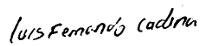 Luis Fernando Cadena